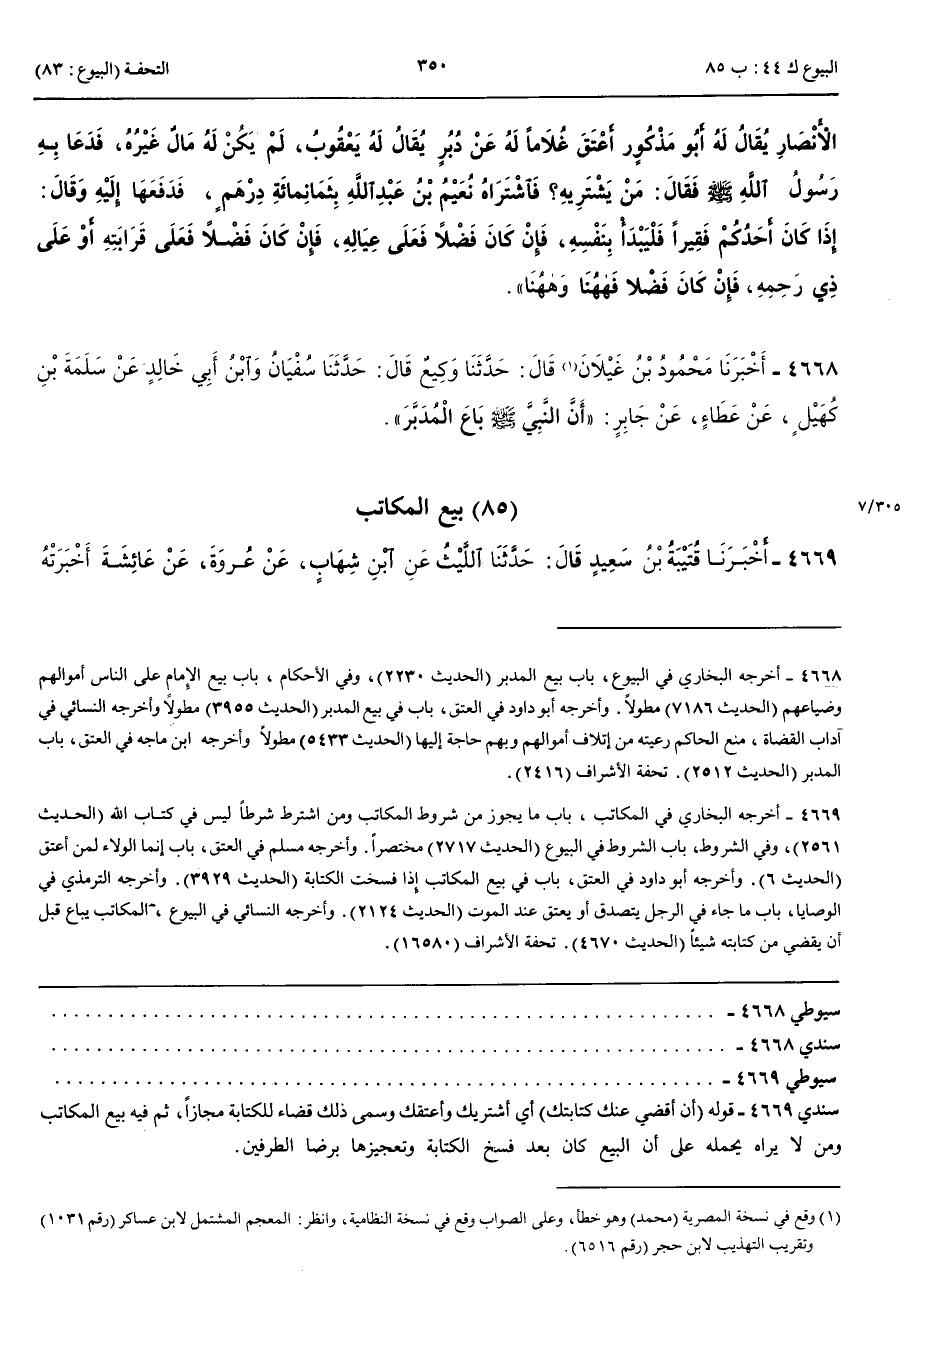 البيوع ك ٤٤: ب ٨٥
٣٥٠
التحفة (البيوع: ٨٣)
الْأَنْصَارِ يُقَالُ لَهُ أَبُو مَذْكُورٍ أَعْتَقَ غُلَاماً لَهُ عَنْ دُبُرٍ يُقَالُ لَهُ يَعْقُوبُ، لَمْ يَكُنْ لَهُ مَالٌ غَيْرُهُ، فَدَعَا بِهِ
رَسُولُ ٱللَّهِ ﷺ فَقَالَ: مَنْ يَشْتَرِيهِ؟ فَٱشْتَرَاهُ نُعَيْمُ بْنُ عَبْدِٱللَّهِ بِثَمَانِمَائَةِ دِرْهَمٍ، فَدَفَعَهَا إِلَيْهِ وَقَالَ:
إِذَا كَانَ أَحَدُكُمْ فَقِيراً فَلْيَبْدَأْ بِنَفْسِهِ، فَإِنْ كَانَ فَضْلًا فَعَلَى عِيَالِهِ، فَإِنْ كَانَ فَضْلًا فَعَلَى قَرَابَتِهِ أَوْ عَلَى
ذِي رَحِمِهِ، فَإِنْ كَانَ فَضْلا فَهٰهُنَا وَهٰهُنَا».
٤٦٦٨ ـ أَخْبَرَنَا مَحْمُودُ بْنُ غَيْلَانَ(١) قَالَ: حَدَّثَنَا وَكِيعٌ قَالَ: حَدَّثَنَا سُفْيَانُ وَٱبْنُ أَبِي خَالِدٍ عَنْ سَلَمَةَ بْنِ
كُهَيْلٍ، عَنْ عَطَاءٍ، عَنْ جَابِرٍ: «أَنَّ النَّبِيَّ ﷺ بَاعَ الْمُدَبَّرَ».
٧/٣٠٥
(٨٥) بيع المكاتب
٤٦٦٩ ـ أَخْبَرَنَا قُتَيْبَةُ بْنُ سَعِيدٍ قَالَ: حَدَّثَنَا ٱللَّيْثُ عَنِ ٱبْنِ شِهَابٍ، عَنْ عُروَةَ، عَنْ عَائِشَةَ أَخْبَرَتْهُ
٤٦٦٨ ـ أخرجه البخاري في البيوع، باب بيع المدبر (الحديث ٢٢٣٠)، وفي الأحكام، باب بيع الإمام على الناس أموالهم
وضياعهم (الحديث ٧١٨٦) مطولاً. وأخرجه أبو داود في العتق، باب في بيع المدبر (الحديث ٣٩٥٥) مطولاً وأخرجه النسائي في
آداب القضاة، منع الحاكم رعيته من إتلاف أموالهم وبهم حاجة إليها (الحديث ٥٤٣٣) مطولاً وأخرجه ابن ماجه في العتق، باب
المدبر (الحديث ٢٥١٢). تحفة الأشراف (٢٤١٦).
٤٦٦٩ ـ أخرجه البخاري في المكاتب، باب ما يجوز من شروط المكاتب ومن اشترط شرطاً ليس في كتاب الله (الحديث
٢٥٦١)، وفي الشروط، باب الشروط في البيوع (الحديث ٢٧١٧) مختصراً. وأخرجه مسلم في العتق، باب إنما الولاء لمن أعتق
(الحديث ٦). وأخرجه أبو داود في العتق، باب في بيع المكاتب إذا فسخت الكتابة (الحديث ٣٩٢٩). وأخرجه الترمذي في
الوصايا، باب ما جاء في الرجل يتصدق أو يعتق عند الموت (الحديث ٢١٢٤). وأخرجه النسائي في البيوع، المكاتب يباع قبل
أن يقضي من كتابته شيئاً (الحديث ٤٦٧٠). تحفة الأشراف (١٦٥٨٠).
سيوطي ٤٦٦٨ ـ . . . . . . . . . . . . . . . . . . . . . . . . . . . . . .
سندي ٤٦٦٨ ـ . . . . . . . . . . . . . . . . . . . . . . . . . . . . . .
سيوطي ٤٦٦٩ ـ . . . . . . . . . . . . . . . . . . . . . . . . . . . . . .
سندي ٤٦٦٩ ـ قوله (أن أقضي عنك كتابتك) أي أشتريك وأعتقك وسمى ذلك قضاء للكتابة مجازاً، ثم فيه بيع المكاتب
ومن لا يراه يحمله على أن البيع كان بعد فسخ الكتابة وتعجيزها برضا الطرفين.
(١) وقع في نسخة المصرية (محمد) وهو خطأ، وعلى الصواب وقع في نسخة النظامية، وانظر: المعجم المشتمل لابن عساكر (رقم ١٠٣١)
وتقريب التهذيب لابن حجر (رقم ٦٥١٦).